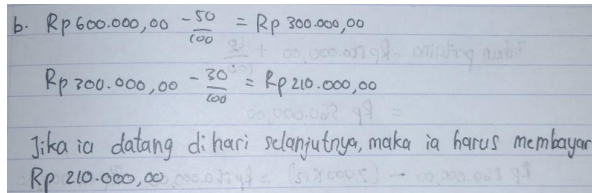 b. Rp 600.000,00 - 50/100 = Rp 300.000,00
Rp 300.000,00 - 30/100 = Rp 210.000,00
Jika ia datang di hari selanjutnya, maka ia harus membayar
Rp 210.000,00